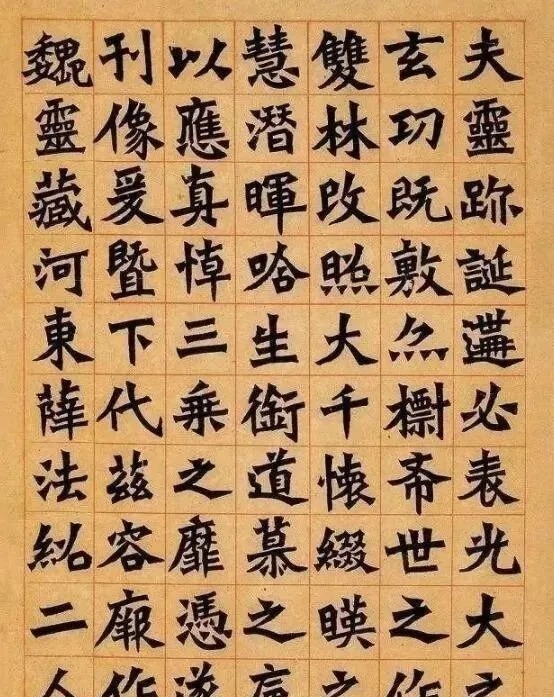 夫靈跡誕遘必表光大之
玄功既敷亦標希世之作
雙林改照大千懷綴暎之
慧潛暉哈生銜道慕之
以應真悼三乘之靡憑遂
刊像爰暨下代茲容廄作
魏靈藏河東薛法紹二人